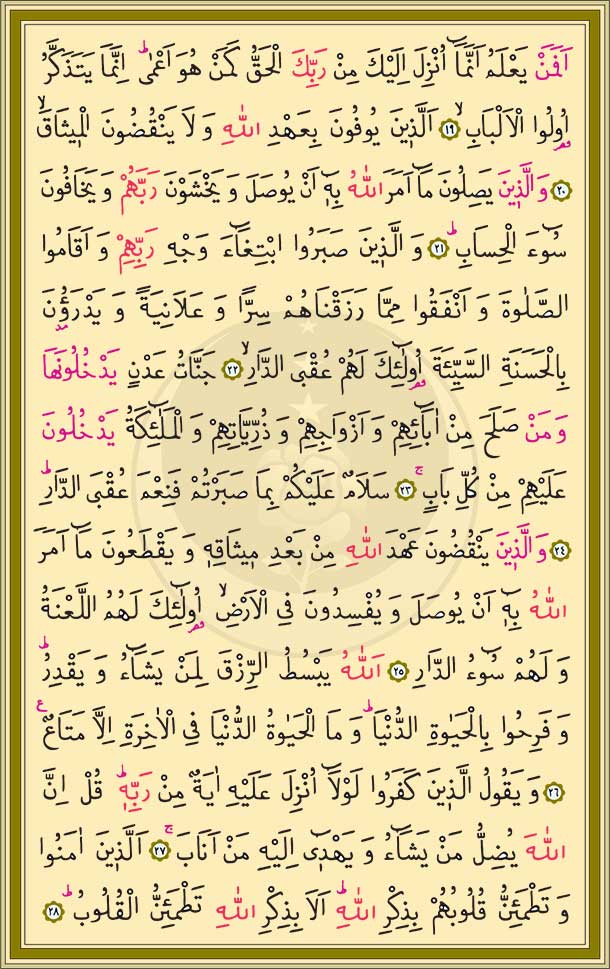 اَفَمَنْ يَعْلَمُ اَنَّمَٓا اُنْزِلَ اِلَيْكَ مِنْ رَبِّكَ الْحَقُّ كَمَنْ هُوَ اَعْمٰىۜ اِنَّمَا يَتَذَكَّرُ
اُو۬لُوا الْاَلْبَابِۙ ﴿١٩﴾ اَلَّذ۪ينَ يُوفُونَ بِعَهْدِ اللّٰهِ وَلَا يَنْقُضُونَ الْم۪يثَاقَۙ
﴿٢٠﴾ وَالَّذ۪ينَ يَصِلُونَ مَٓا اَمَرَ اللّٰهُ بِه۪ٓ اَنْ يُوصَلَ وَيَخْشَوْنَ رَبَّهُمْ وَيَخَافُونَ
سُٓوءَ الْحِسَابِۜ ﴿٢١﴾ وَالَّذ۪ينَ صَبَرُوا ابْتِغَٓاءَ وَجْهِ رَبِّهِمْ وَاَقَامُوا
الصَّلٰوةَ وَاَنْفَقُوا مِمَّا رَزَقْنَاهُمْ سِرًّا وَعَلَانِيَةً وَيَدْرَؤُ۫نَ
بِالْحَسَنَةِ السَّيِّئَةَ اُو۬لٰٓئِكَ لَهُمْ عُقْبَى الدَّارِۙ ﴿٢٢﴾ جَنَّاتُ عَدْنٍ يَدْخُلُونَهَا
وَمَنْ صَلَحَ مِنْ اٰبَٓائِهِمْ وَاَزْوَاجِهِمْ وَذُرِّيَّاتِهِمْ وَالْمَلٰٓئِكَةُ يَدْخُلُونَ
عَلَيْهِمْ مِنْ كُلِّ بَابٍۚ ﴿٢٣﴾ سَلَامٌ عَلَيْكُمْ بِمَا صَبَرْتُمْ فَنِعْمَ عُقْبَى الدَّارِۜ
﴿٢٤﴾ وَالَّذ۪ينَ يَنْقُضُونَ عَهْدَ اللّٰهِ مِنْ بَعْدِ م۪يثَاقِه۪ وَيَقْطَعُونَ مَٓا اَمَرَ
اللّٰهُ بِه۪ٓ اَنْ يُوصَلَ وَيُفْسِدُونَ فِي الْاَرْضِۙ اُو۬لٰٓئِكَ لَهُمُ اللَّعْنَةُ
وَلَهُمْ سُٓوءُ الدَّارِ ﴿٢٥﴾ اَللّٰهُ يَبْسُطُ الرِّزْقَ لِمَنْ يَشَٓاءُ وَيَقْدِرُۜ
وَفَرِحُوا بِالْحَيٰوةِ الدُّنْيَاۜ وَمَا الْحَيٰوةُ الدُّنْيَا فِي الْاٰخِرَةِ اِلَّا مَتَاعٌ۟
﴿٢٦﴾ وَيَقُولُ الَّذ۪ينَ كَفَرُوا لَوْلَٓا اُنْزِلَ عَلَيْهِ اٰيَةٌ مِنْ رَبِّه۪ۜ قُلْ اِنَّ
اللّٰهَ يُضِلُّ مَنْ يَشَٓاءُ وَيَهْد۪ٓي اِلَيْهِ مَنْ اَنَابَۚ ﴿٢٧﴾ اَلَّذ۪ينَ اٰمَنُوا
وَتَطْمَئِنُّ قُلُوبُهُمْ بِذِكْرِ اللّٰهِۜ اَلَا بِذِكْرِ اللّٰهِ تَطْمَئِنُّ الْقُلُوبُۜ ﴿٢٨﴾